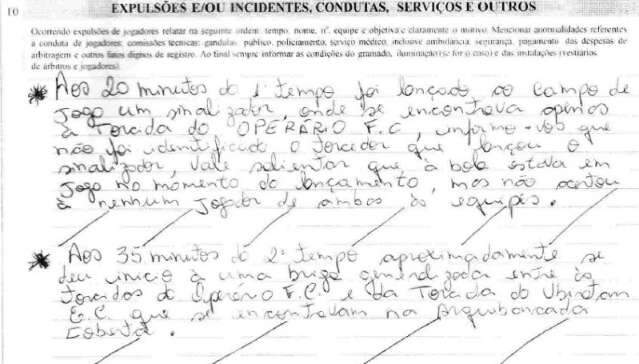 10
EXPULSÕES E/OU INCIDENTES, CONDUTAS, SERVIÇOS E OUTROS
Ocorrendo expulsões de jogadores relatar na seguinte ordem: tempo, nome, nº, equipe e objetiva e claramente o motivo. Mencionar anormalidades referentes
a conduta de jogadores, comissões técnicas, gandulas, público, policiamento, serviço médico, inclusive ambulância, segurança, pagamento das despesas de
arbitragem e outros fatos dignos de registro. Ao final sempre informar as condições do gramado, iluminação (se for o caso) e das instalações (vestiários
de árbitros e jogadores).
* Aos 20 minutos do 1º tempo foi lançado ao campo de
jogo um sinalizador, onde se encontrava apenas
à Torcida do OPERÁRIO F.C, informo-vos que
não foi identificado o torcedor que lançou o
sinalizador, vale salientar que à bola estava em
jogo no momento do lançamento, mas não acertou
à nenhum jogador de ambas às equipes.
* Aos 35 minutos do 2º tempo aproximadamente se
deu inicio à uma briga generalizada entre às
torcidas do Operário F.C. e da Torcida do Ubiratam
E.C. que se encontravam na Arquibancada
Coberta.